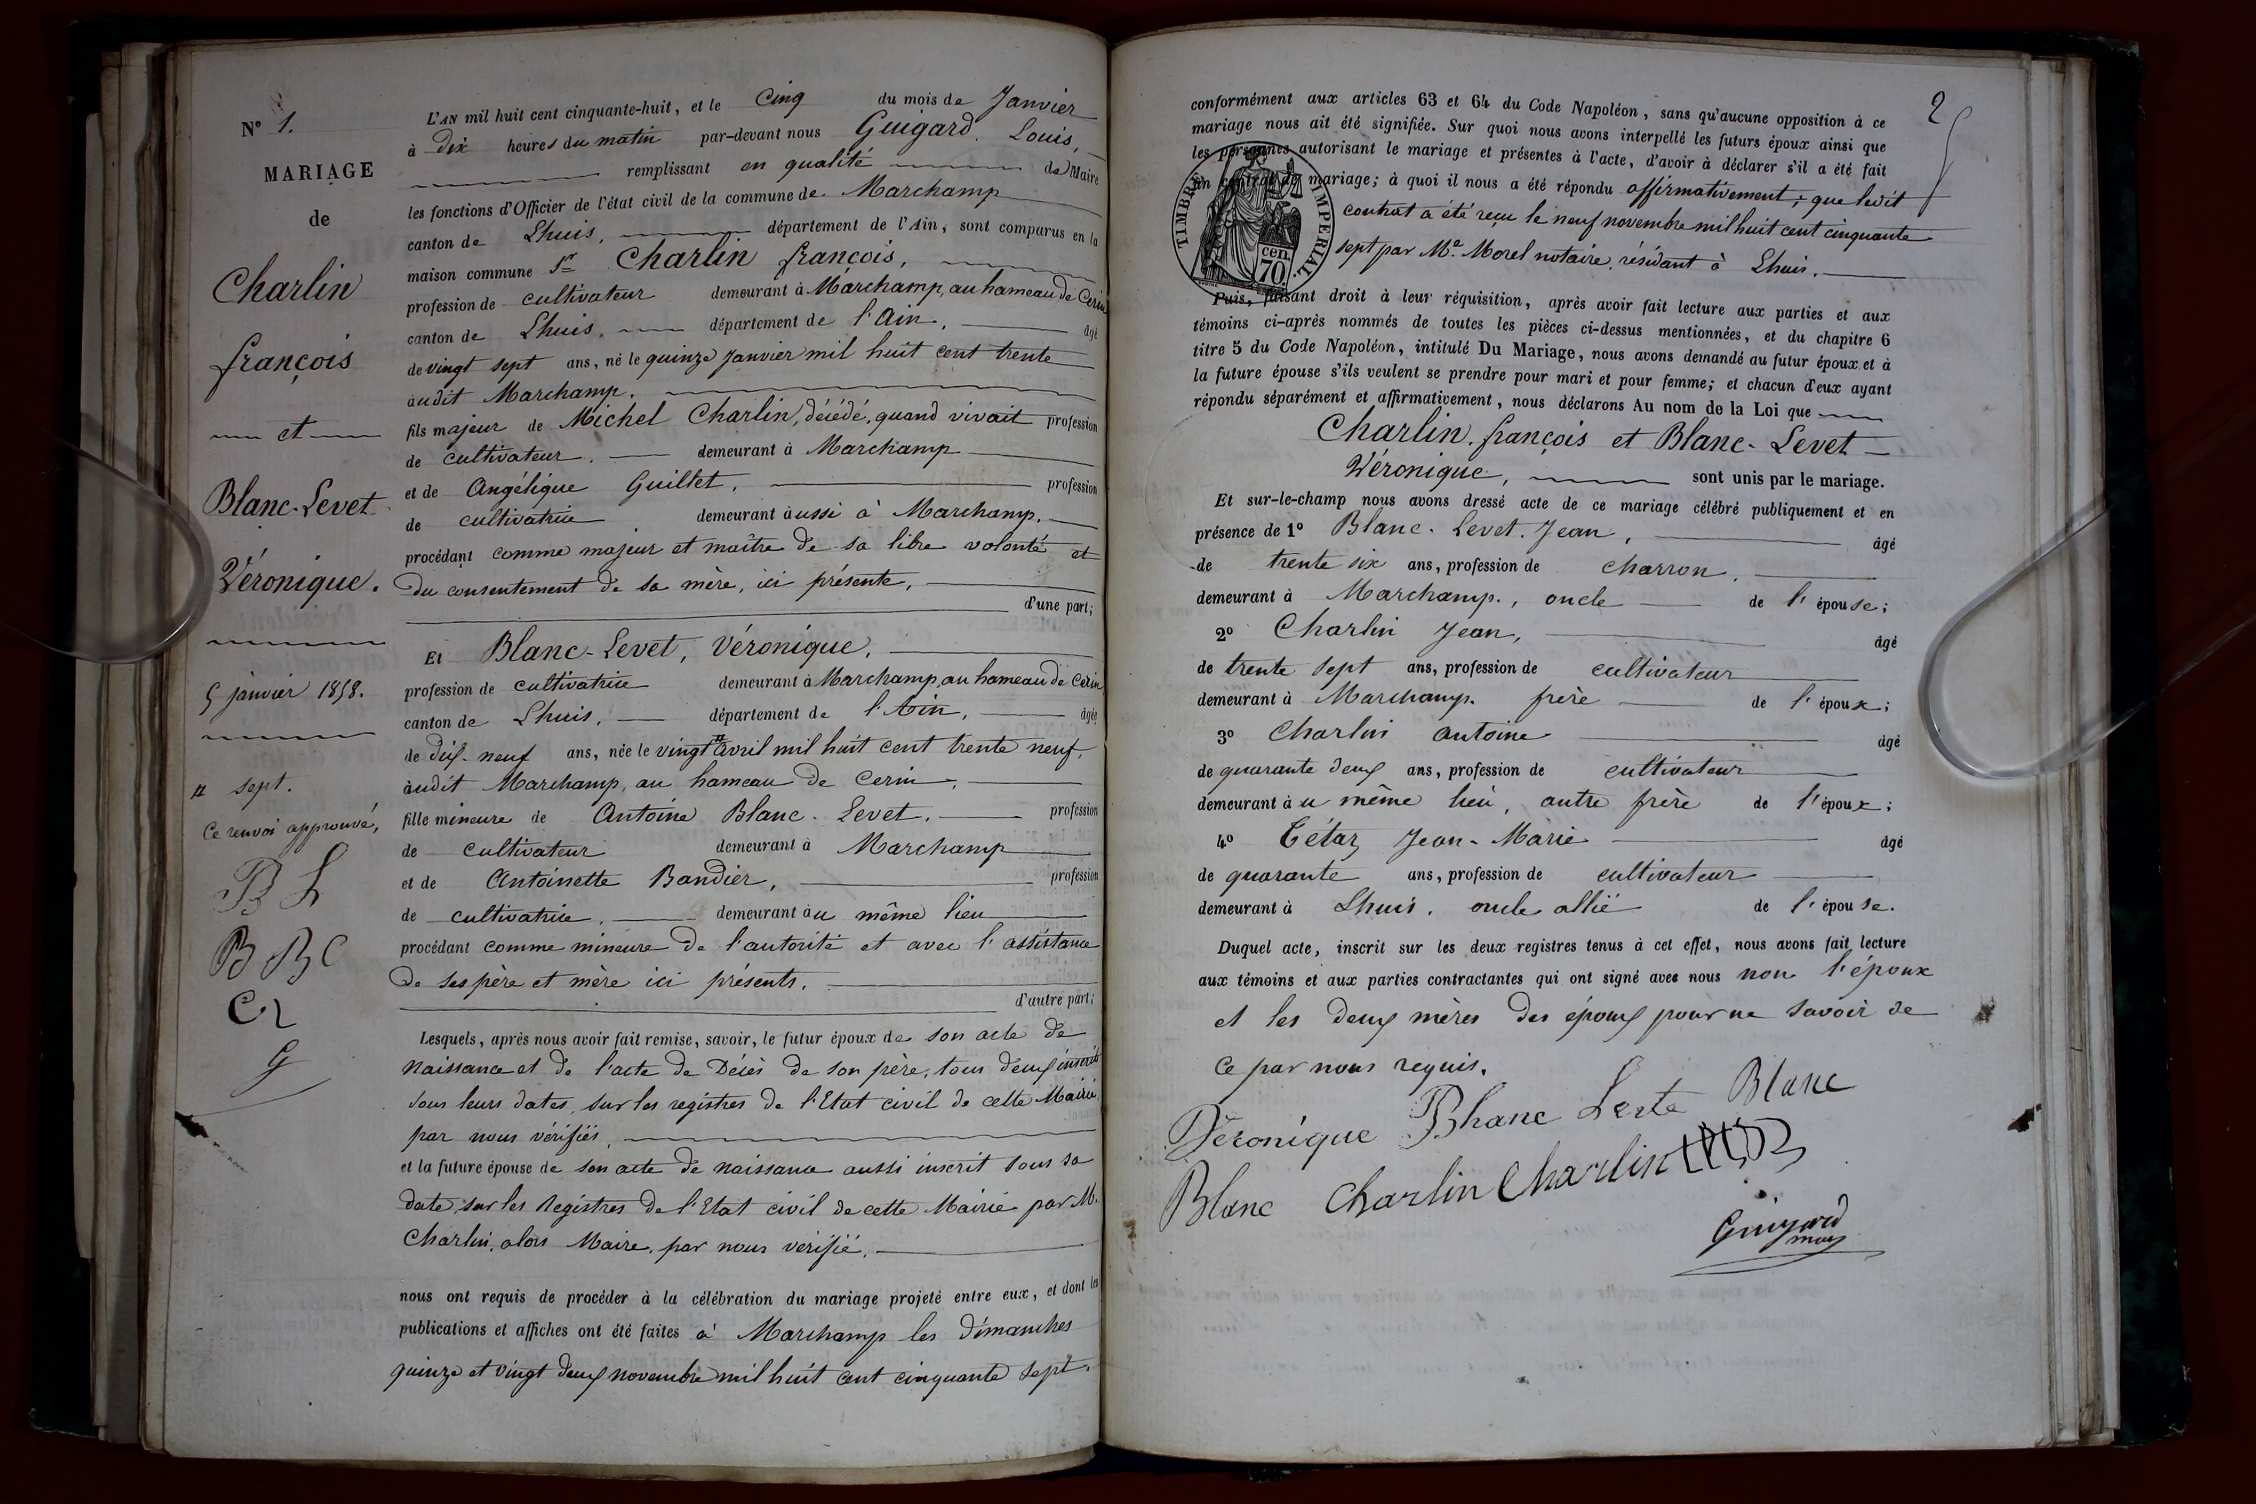 N° 1.
MARIAGE
de
Charlin
françois
et
Blanc-Levet
Véronique.
5 janvier 1858.
# sept.
Ce renvoi approuvé,
B L
B B C
G
L'AN mil huit cent cinquante-huit, et le Cinq du mois de Janvier
à Dix heures du matin par-devant nous Guigard Louis,
remplissant en qualité de Maire
les fonctions d'Officier de l'état civil de la commune de Marchamp
canton de Lhuis, département de l'Ain, sont comparus en la
maison commune Sr Charlin françois,
profession de cultivateur demeurant à Marchamp, au hameau de Cerin
canton de Lhuis, département de l'Ain, âgé
de vingt sept ans, né le quinze Janvier mil huit cent trente
audit Marchamp,
fils majeur de Michel Charlin, décédé, quand vivait profession
de cultivateur, demeurant à Marchamp
et de Angélique Guillet, profession
de cultivatrice demeurant aussi à Marchamp,
procédant comme majeur et maître de sa libre volonté et
du consentement de sa mère, ici présente,
d'une part;
Et Blanc-Levet, Véronique,
profession de cultivatrice demeurant à Marchamp, au hameau de Cerin
canton de Lhuis, département de l'Ain, âgée
de dix-neuf ans, née le vingt # avril mil huit cent trente neuf,
audit Marchamp, au hameau de Cerin,
fille mineure de Antoine Blanc-Levet, profession
de cultivateur demeurant à Marchamp
et de Antoinette Bandier, profession
de cultivatrice, demeurant au même lieu
procédant comme mineure de l'autorité et avec l'assistance
de ses père et mère ici présents,
d'autre part;
Lesquels, après nous avoir fait remise, savoir, le futur époux de son acte de
naissance et de l'acte de Décès de son père, tous deux inscrits
sous leurs dates, sur les registres de l'Etat civil de cette Mairie,
par nous vérifiés,
et la future épouse de son acte de naissance aussi inscrit sous sa
date, sur les Registres de l'Etat civil de cette Mairie par M.
Charlin, alors Maire, par nous vérifié,
nous ont requis de procéder à la célébration du mariage projeté entre eux, et dont les
publications et affiches ont été faites à Marchamp les dimanches
quinze et vingt deux novembre mil huit cent cinquante sept,
2
conformément aux articles 63 et 64 du Code Napoléon, sans qu'aucune opposition à ce
mariage nous ait été signifiée. Sur quoi nous avons interpellé les futurs époux ainsi que
les personnes autorisant le mariage et présentes à l'acte, d'avoir à déclarer s'il a été fait
un contrat de mariage; à quoi il nous a été répondu affirmativement; que ledit
contrat a été reçu le neuf novembre mil huit cent cinquante
sept par Me. Morel notaire, résidant à Lhuis.
TIMBRE IMPERIAL.
cen. 70.
Puis, faisant droit à leur réquisition, après avoir fait lecture aux parties et aux
témoins ci-après nommés de toutes les pièces ci-dessus mentionnées, et du chapitre 6
titre 5 du Code Napoléon, intitulé Du Mariage, nous avons demandé au futur époux et à
la future épouse s'ils veulent se prendre pour mari et pour femme; et chacun d'eux ayant
répondu séparément et affirmativement, nous déclarons Au nom de la Loi que
Charlin, françois et Blanc-Levet
Véronique, sont unis par le mariage.
Et sur-le-champ nous avons dressé acte de ce mariage célébré publiquement et en
présence de 1° Blanc-Levet Jean, âgé
de trente six ans, profession de charron,
demeurant à Marchamp, oncle de l'épouse;
2° Charlin Jean, âgé
de trente sept ans, profession de cultivateur
demeurant à Marchamp frère de l'époux;
3° Charlin antoine âgé
de quarante deux ans, profession de cultivateur
demeurant au même lieu, autre frère de l'époux;
4° Tétaz Jean-Marie âgé
de quarante ans, profession de cultivateur
demeurant à Lhuis, oncle allié de l'épouse.
Duquel acte, inscrit sur les deux registres tenus à cet effet, nous avons fait lecture
aux témoins et aux parties contractantes qui ont signé avec nous non l'époux
et les deux mères des époux pour ne savoir de
ce par nous requis.
Véronique Blanc Levte Blanc
Blanc Charlin Charlin
Guigard